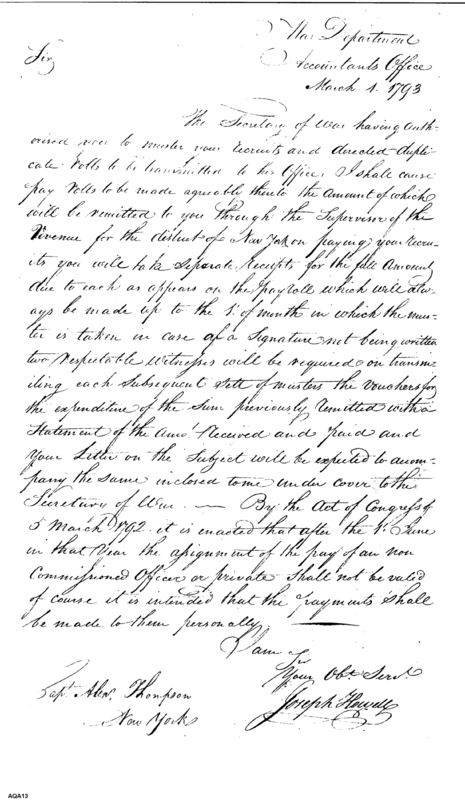 War Department
Accountants Office
March 1. 1793
Sir
The Secretary of War having auth-
orised you to muster your recruits and directed dupli-
cate Rolls to be transmitted to his Office, I shall cause
pay Rolls to be made agreeable thereto the Amount of which
will be remitted to you through the Supervisor of the
Revenue for the district of New York on paying your Recru-
its you will take Separate Receipts for the full Amount
due to each as appears on the payroll which will alw-
ays be made up to the 1st of month in which the mus-
ter is taken in case of a Signature not being written
two respectable Witnesses will be required on transm-
iting each Subsequent Sett of musters the Vouchers for
the expenditure of the Sum previously remitted with a
Statement of the Amot Received and paid and
your Letter on the Subject will be expected to accom-
pany the same inclosed to me under cover to the
Secretary of War. — By the Act of Congress of
5 March 1792 it is enacted that after the 1st June
in that Year the assignment of the pay of an non
Commissioned Officer or private Shall not be valid
of course it is intended that the payments Shall
be made to them personally.
I am
Sir
Your Obt Servt
Joseph Howell
Capt. Alexr Thompson
New York
AQA13